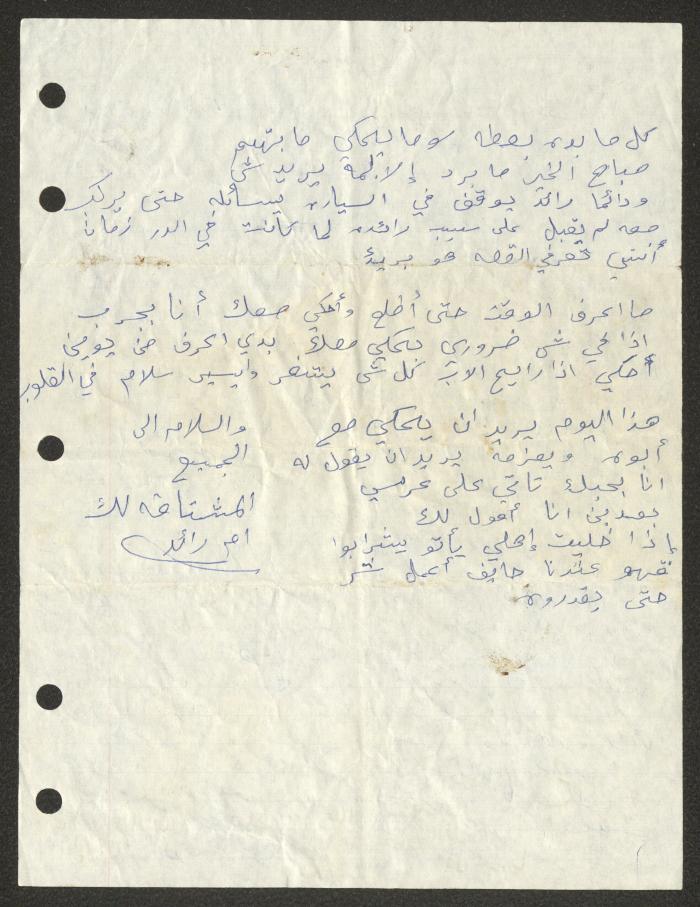 كل ما بوه بعطه سوما يحكي ما بتهيم
صباح الخير ما برد إلا بلمة يريد شي
ودائما رائد يوقف في السياره يسأله حتى يركب
معه لم يقبل على سبب رائده لما كانت في الدر زمان
أنتي تعرفي القصه هو بريد
ما اعرف الوقت حتى أطلع وأحكي معك أنا بجرب
اذا في شي ضروري بحكي معك بدي اعرف من يومين
أحكي اذا رايح الاب كل شي يتنتضر وايسير سلام في القلوب
هذا اليوم يريد ان يحكي مع
أبوه ويعزمه يريد ان يقول له
انا بحبك تاتي على عرسي
بعدين انا أقول لك
ماذا خليت إهلي يأتو يشرابوا
قهو عندنا حايف أعمل شر
حتى يقدروه
والسلام الى
الجميع
المشتاقه لك
ام رائد